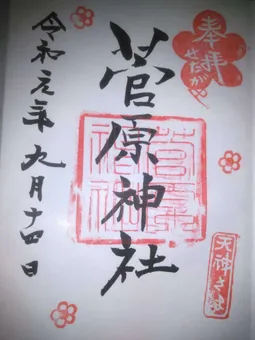 奉拝
せたがや
菅原神社
令和元年九月十四日
菅原神社
天神さま